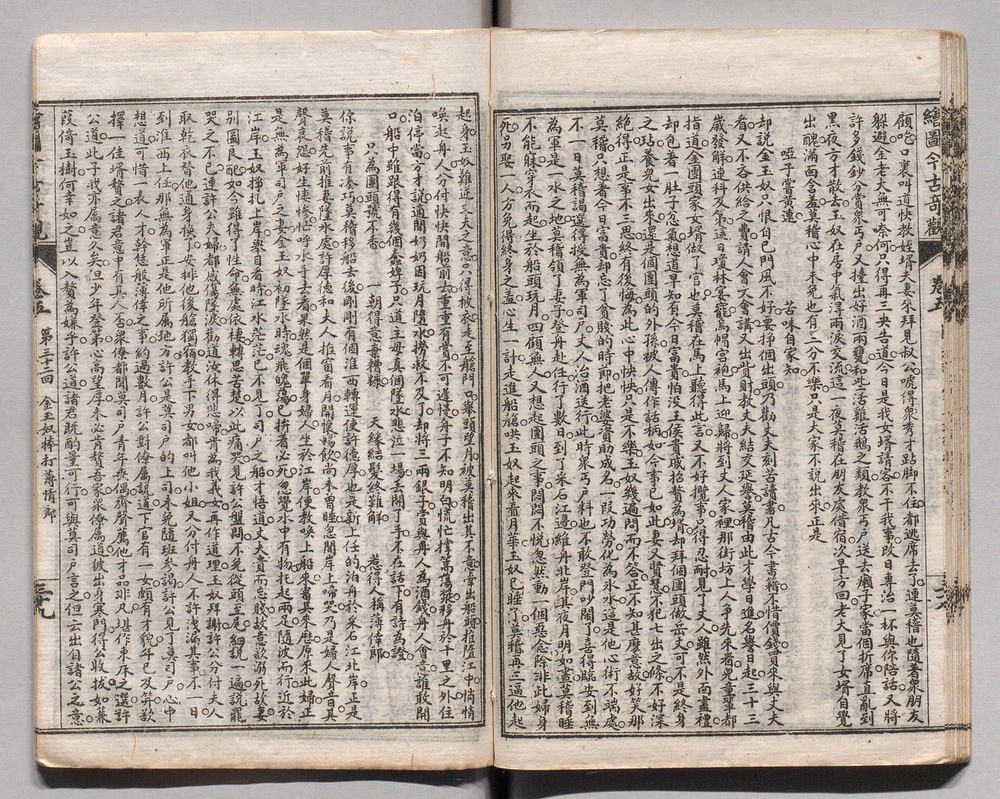 繪圖今古奇觀　卷五
顧吃口裏叫道快教姪壻夫妻來拜見叔公唬得衆秀才跕脚不住都逃席去了連莫稽也隨着衆朋友
躲避金老大無可奈何只得再三央告道今日是我女壻請客不干我事改日專治一杯與你陪話又將
許多錢鈔分賞衆丐户又擡出好酒兩甕和些活雞活鵝之類教衆丐户送去癩子家當個折席直亂到
黑夜方才散去玉奴在房中氣得兩淚交流這一夜莫稽在朋友處借宿次早方回老大見了女壻自覺
出醜滿面含羞莫稽心中未免也有三分不樂只是大家不說出來正是
啞子嘗黃連　苦味自家知
却說金玉奴只恨自己門風不好要掙個出頭乃勸丈夫刻苦讀書凡古今書籍不惜價錢買來與丈夫
看又不吝供給之費請人會文會講又出貲財教丈夫結交延譽莫稽由此才學日進名譽日起二十三
歲發解連科及第這日瓊林宴罷烏帽宮袍馬上迎歸將到丈人家裡那街坊上人爭先來看兒童輩都
指道金團頭家女壻做了官也莫稽在馬上聽得此言又不好攬事只得忍耐見了丈人雖然外面盡禮
却包着一肚子忿氣想道早知有今日富貴怕没王侯貴戚招贅為壻却拜個團頭做岳丈可不是終身
之玷養兒女出來還是個團頭的外孫被人傳作話柄如今事已如此妻又賢慧不犯七出之條不好決
絕得正是事不三思終有後悔為此心中怏怏只是不樂玉奴幾遍問而不答正不知甚麼意故好笑那
莫稽只想着今日富貴却忘了貧賤的時節把老婆資助成名一段功勞化為氷水這是他心術不端處
不一日莫稽謁選得授無為軍司户丈人治酒送行此時衆丐户料也不敢登門吵鬧了喜得臨安到無
為軍是一水之地莫稽領了妻子登舟赴任行了數日到了采石江邊維舟北岸其夜月明如晝莫稽睡
不能寐穿衣而起坐於船頭玩月四顧無人又想起團頭之事悶悶不悅忽然動一個惡念除非此婦身
死另娶一人方免得終身之羞心生一計走進船艙哄玉奴起來看月華玉奴已睡了莫稽再三逼他起
起身玉奴難逆丈夫之意只得披衣走至艙門口舉頭望月被莫稽出其不意牽出船頭推墮江中悄悄
喚起舟人分付快快開船前去重重有賞不可遲慢舟子不知明白慌忙撐篙蕩槳移舟於十里之外住
泊停當方才說適間奶奶因玩月墮水撈救不及了却將三兩銀子賞與舟人為酒錢舟人會意誰敢開
口船中雖跟得有幾個蠢婢子只道主母真個墮水悲泣一場丟開了手不在話下有詩為證
只為團頭號不香　一朝得意棄糟糠　天緣結髮終難解　惹得人稱薄倖郎
你說事有凑巧莫稽移船去後剛剛有個淮西轉運使許德厚也是新上任的泊舟於采石江北岸正是
莫稽先前推妻墮水處許厚德和夫人推窗看月開懷暢飲尚未曾睡忽聞岸上啼哭乃是婦人聲音其
聲哀怨好生悽慘忙呼水手去看果然是個單身婦人坐於江岸便教喚上船來審其來歷原來此婦正
是無為軍司户之妻金玉奴初墜水時魂飛魄蕩已拚着必死忽覺水中有物托起兩足隨波而行近於
江岸玉奴掙扎上岸舉目看時江水茫茫已不見了司户之船才悟道丈夫貴而忘賤故意欲溺死故妻
別圖良配如今雖得了性命無處依棲轉思苦楚以此痛哭見許公盤問不免從頭至尾細說一遍說罷
哭之不已連許公夫婦都感傷墮淚勸道汝休得悲啼肯為我義女再作道理玉奴拜謝許公分付夫人
取乾衣替他通身換了安排他後艙獨宿教手下男女都叫他小姐又分付舟人不許洩漏其事不一日
到淮西上任那無為軍正是他所屬地方許公是莫司户的上司未免隨班參謁許公見了莫司户心中
想道可惜一表人才幹恁般薄倖之事約過數月許公對僚屬說道下官有一女頗有才貌年已及笄欲
擇一佳壻贅之諸君意中有其人否衆僚都聞莫司户青年喪偶齊聲薦他才品非凡堪作東床之選許
公道此子我亦屬意久矣但少年登第心高望厚未必肯贅吾家衆僚屬道彼出身寒門得公收拔如蒹
葭倚玉樹何幸如之豈以入贅為嫌乎許公道諸君既酌量可行可與莫司户言之但云出自諸公之意
繪圖今古奇觀　卷五　第三十二回　金玉奴棒打薄情郎　三九